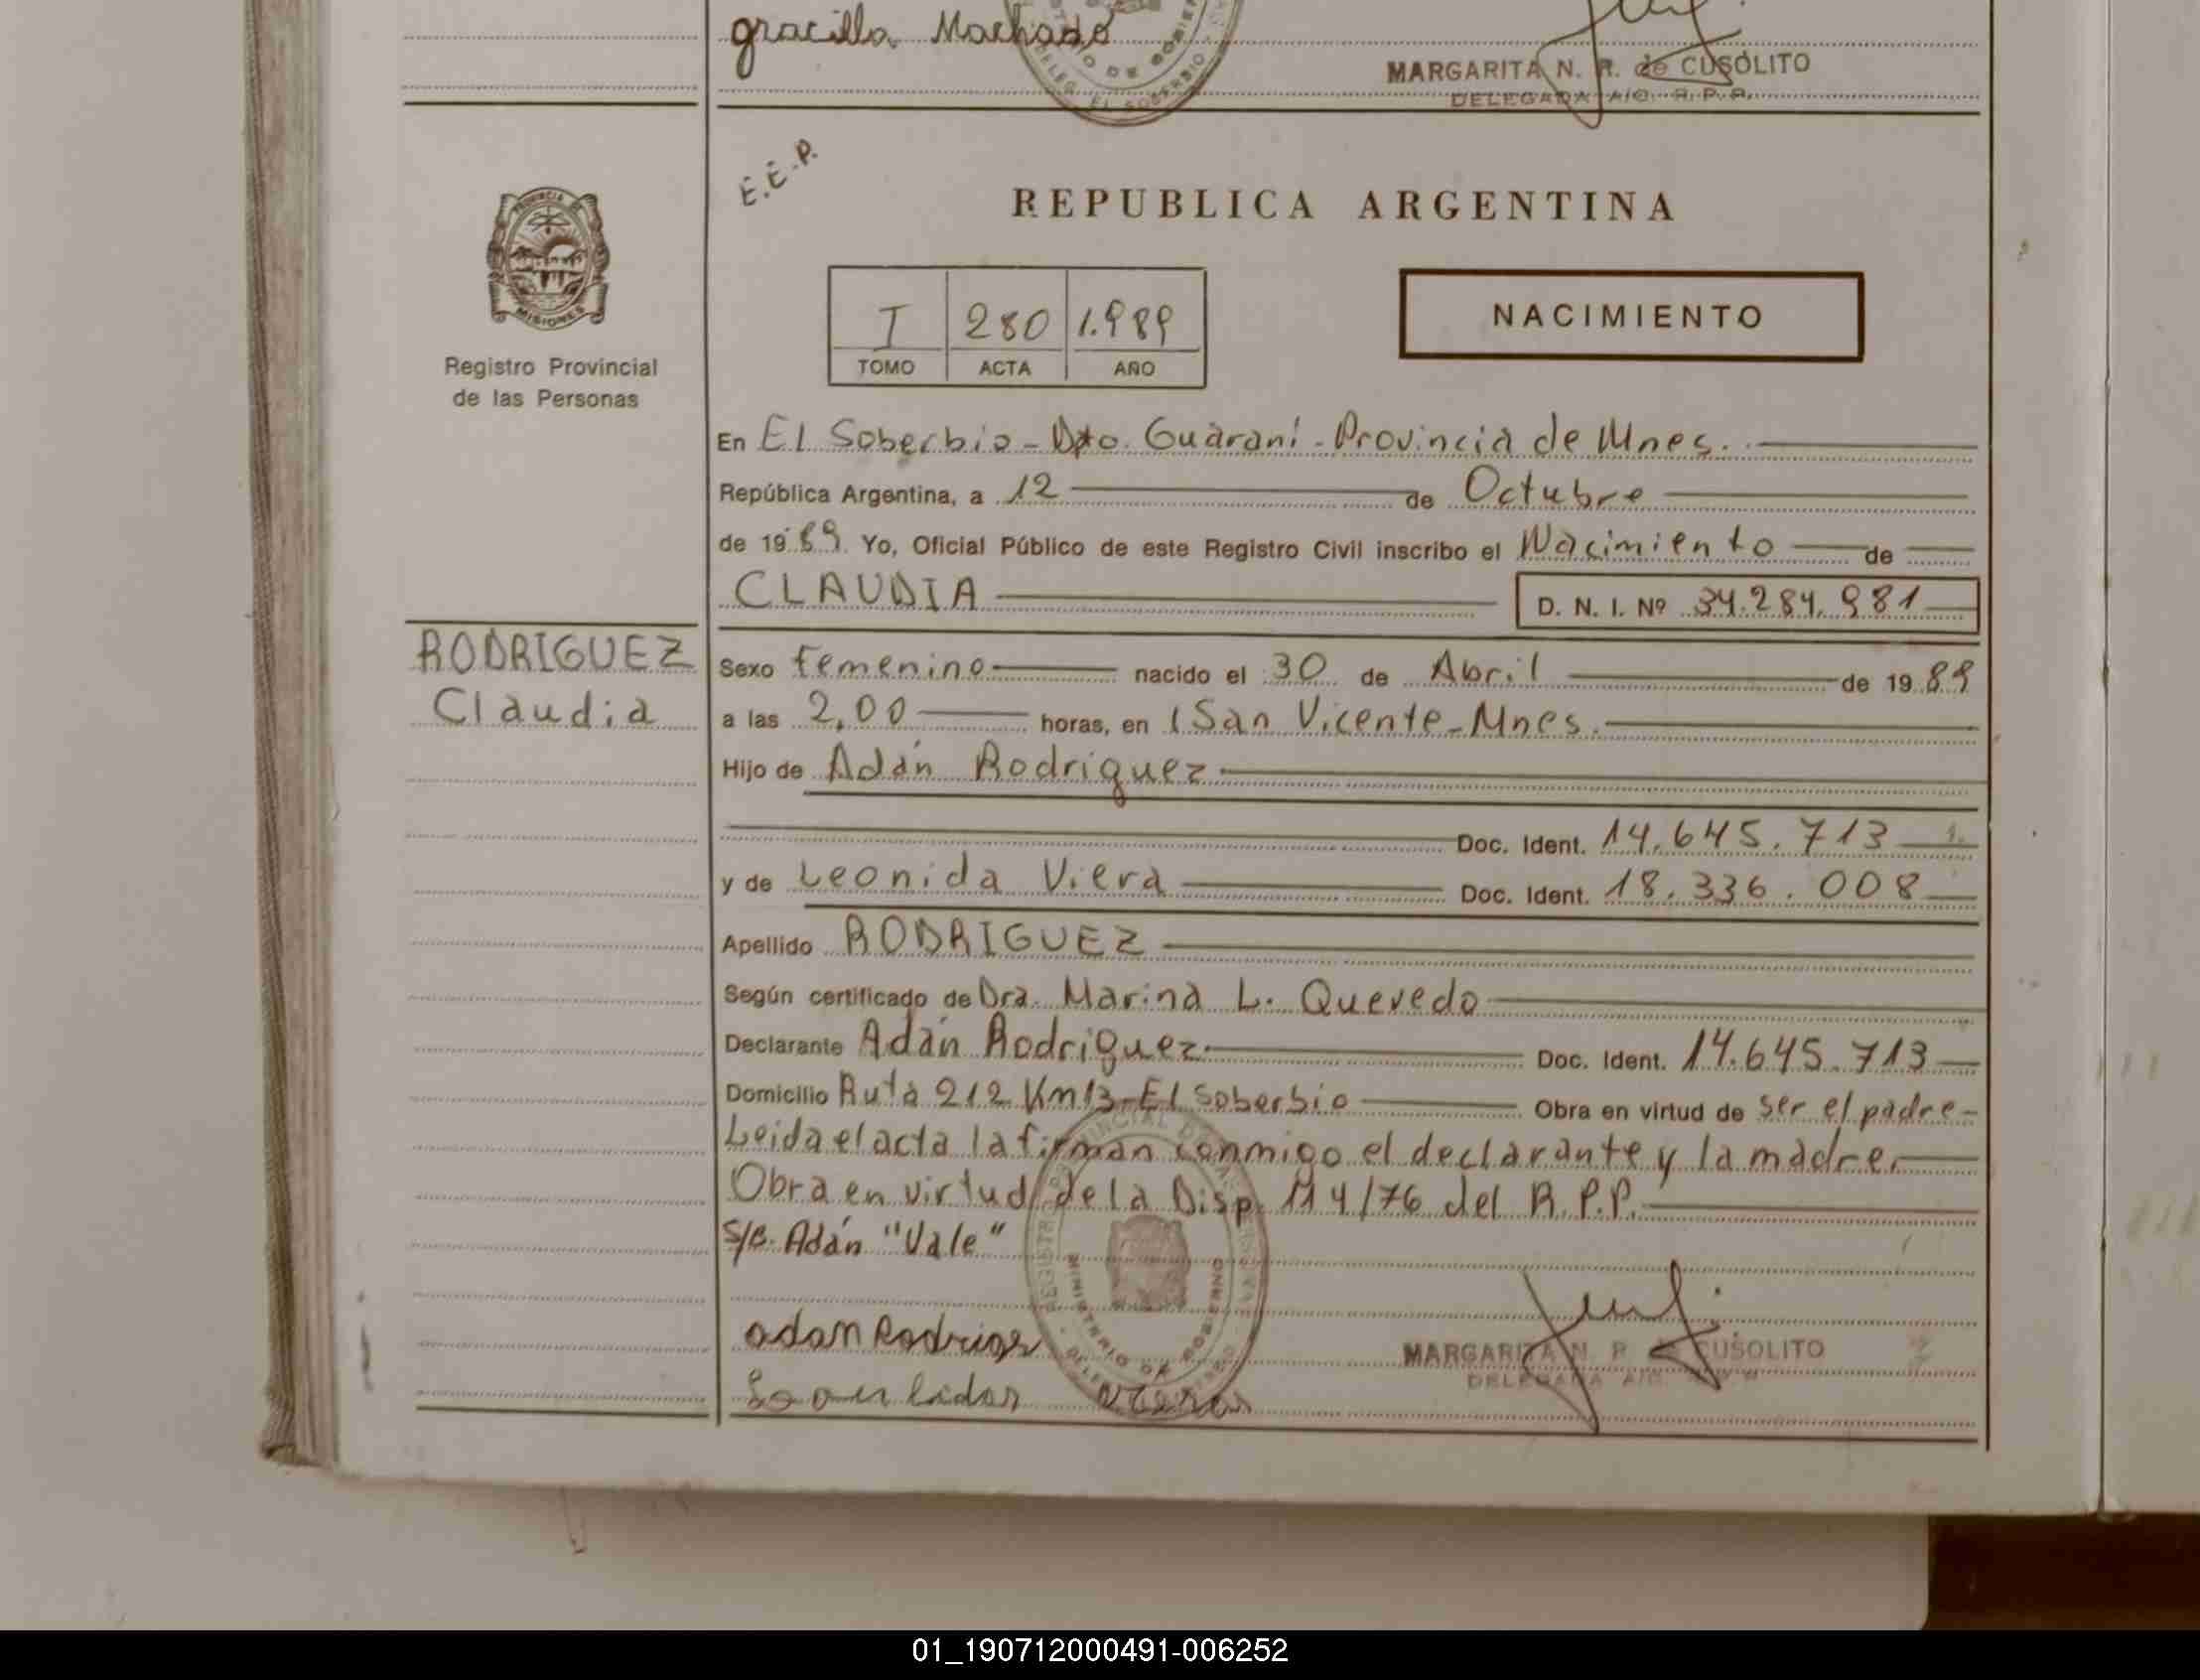 gracilla Machado
MARGARITA N. R. de CUSOLITO
DELEGADA A/C. R. P. P.
E.E.P.
REPUBLICA ARGENTINA
PROVINCIA DE
MISIONES
Registro Provincial
de las Personas
I 280 1.989
TOMO ACTA AÑO
NACIMIENTO
En El Soberbio - Dto. Guaraní - Provincia de Mnes.
República Argentina, a 12 de Octubre
de 1989. Yo, Oficial Público de este Registro Civil inscribo el Nacimiento de
CLAUDIA D. N. I. Nº 34.284.981
RODRIGUEZ
Claudia
Sexo Femenino nacido el 30 de Abril de 1989
a las 2,00 horas, en San Vicente - Mnes.
Hijo de Adán Rodriguez
Doc. Ident. 14.645.713
y de Leonida Viera Doc. Ident. 18.336.008
Apellido RODRIGUEZ
Según certificado de Dra. Marina L. Quevedo
Declarante Adán Rodriguez Doc. Ident. 14.645.713
Domicilio Ruta 212 Km 13 - El Soberbio Obra en virtud de ser el padre -
Leida el acta la firman conmigo el declarante y la madre.
Obra en virtud de la Disp. 114/76 del R.P.P.
S/B. Adán "Vale"
MINISTERIO DE GOBIERNO
adan Rodrigez
MARGARITA N. R. de CUSOLITO
DELEGADA A/C.
01_190712000491-006252